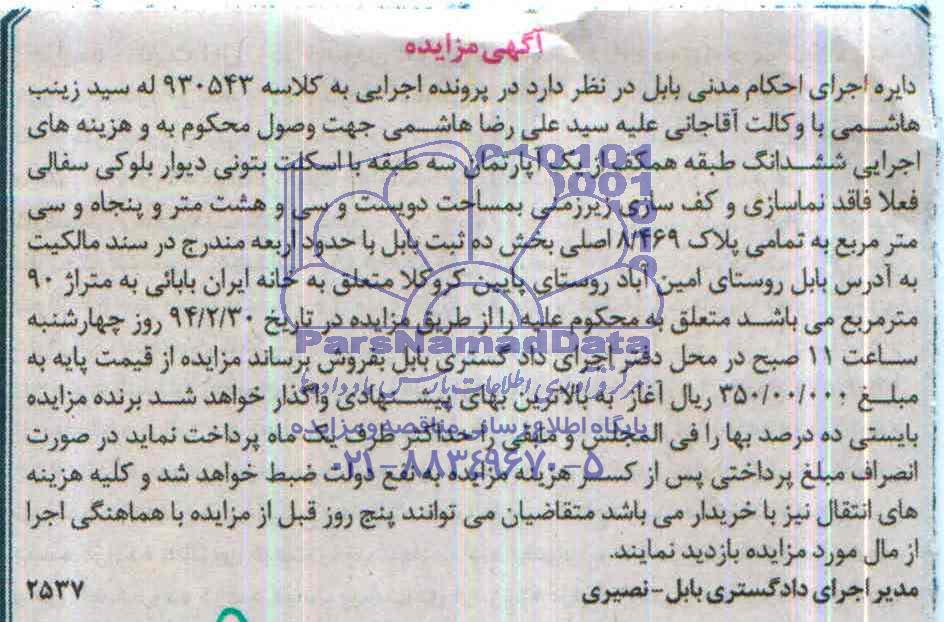 آگهی مزایده
دایره اجرای احکام مدنی بابل در نظر دارد در پرونده اجرایی به کلاسه ۹۳۰۵۴۳ له سید زینب
هاشمی با وکالت آقاجانی علیه سید علی رضا هاشمی جهت وصول محکوم به و هزینه های
اجرایی ششدانگ طبقه همکف از یک آپارتمان سه طبقه با اسکلت بتونی دیوار بلوکی سفالی
فعلا فاقد نماسازی و کف سازی زیرزمینی بمساحت دویست و سی و هشت متر و پنجاه و سی
متر مربع به تمامی پلاک ۸/۴۶۹ اصلی بخش ده ثبت بابل با حدود اربعه مندرج در سند مالکیت
به آدرس بابل روستای امین آباد روستای پایین کروکلا متعلق به خانه ایران بابائی به متراژ ۹۰
مترمربع می باشد متعلق به محکوم علیه را از طریق مزایده در تاریخ ۹۴/۲/۳۰ روز چهارشنبه
ساعت ۱۱ صبح در محل دفتر اجرای دادگستری بابل بفروش برساند مزایده از قیمت پایه به
مبلغ ۳۵۰/۰۰/۰۰۰ ریال آغاز به بالاترین بهای پیشنهادی واگذار خواهد شد برنده مزایده
بایستی ده درصد بها را فی المجلس و مابقی را حداکثر ظرف یک ماه پرداخت نماید در صورت
انصراف مبلغ پرداختی پس از کسر هزینه مزایده به نفع دولت ضبط خواهد شد و کلیه هزینه
های انتقال نیز با خریدار می باشد متقاضیان می توانند پنج روز قبل از مزایده با هماهنگی اجرا
از مال مورد مزایده بازدید نمایند
مدیر اجرای دادگستری بابل-نصیری ۲۵۳۷
ParsNamadData
پایگاه اطلاع رسانی مناقصه و مزایده
۰۲۱-۸۸۳۴۹۶۷۰-۵